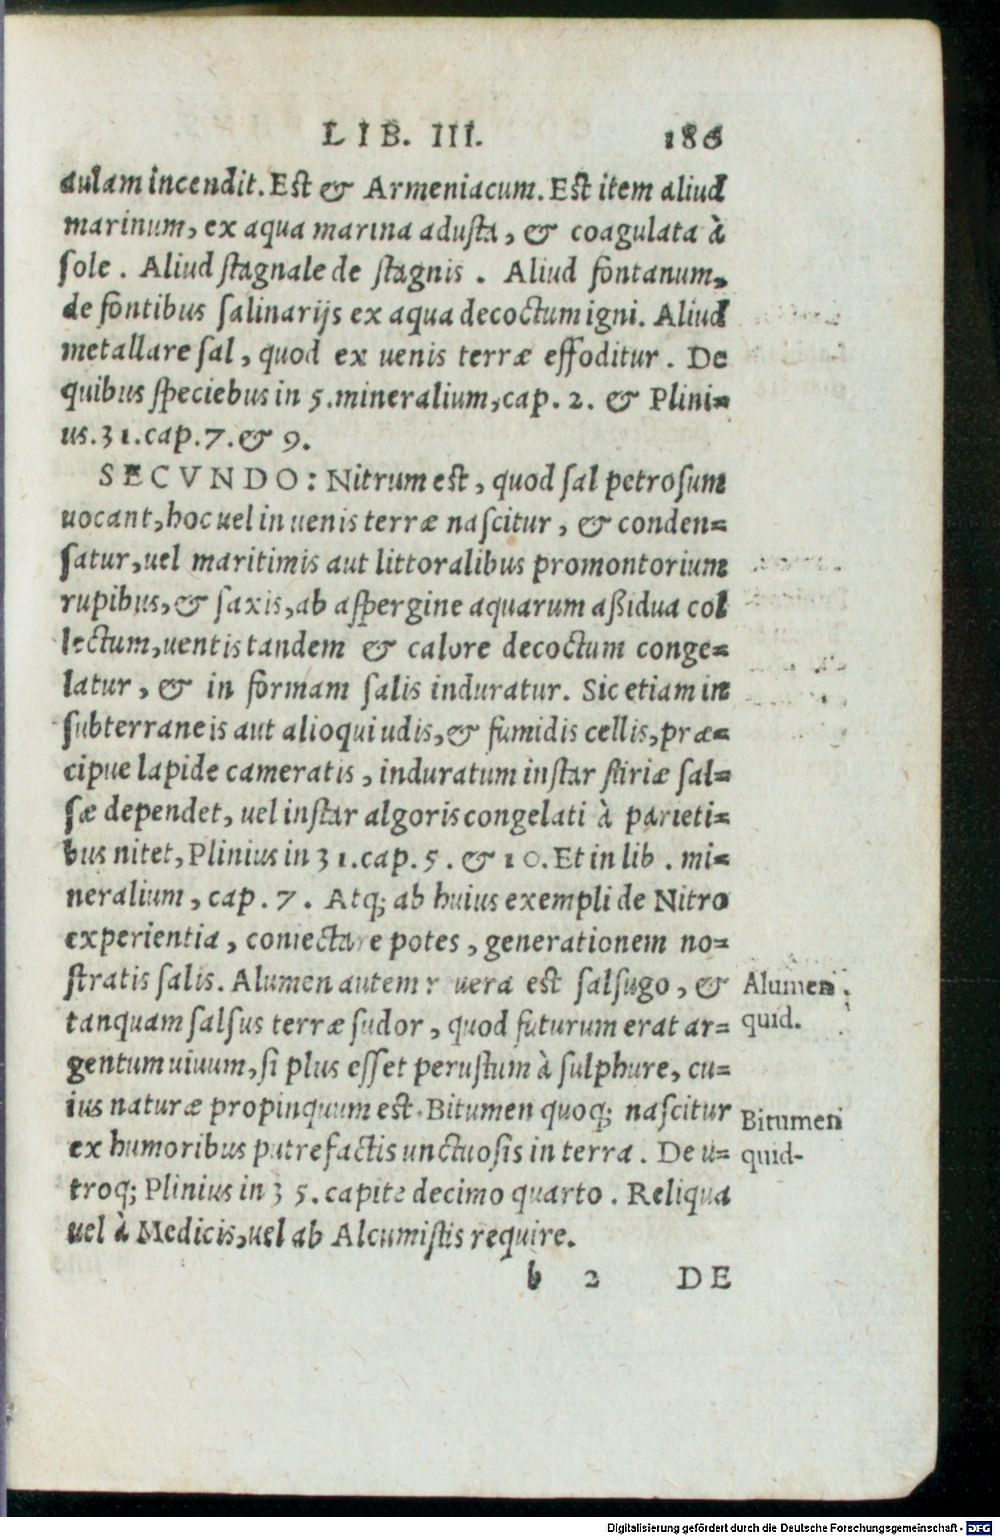 LIB. III. 186
aulam incendit. Est & Armeniacum. Est item aliud
marinum, ex aqua marina adusta, & coagulata à
sole. Aliud stagnale de stagnis. Aliud fontanum,
de fontibus salinarijs ex aqua decoctum igni. Aliud
metallare sal, quod ex uenis terræ effoditur. De
quibus speciebus in 5. mineralium, cap. 2. & Plini=
us. 31. cap. 7. & 9.
SECVNDO: Nitrum est, quod sal petrosum
uocant, hoc uel in uenis terræ nascitur, & conden=
satur, uel maritimis aut littoralibus promontorium
rupibus, & saxis, ab aspergine aquarum aßidua col
lectum, uentis tandem & calore decoctum conge=
latur, & in formam salis induratur. Sic etiam in
subterraneis aut alioqui udis, & fumidis cellis, præ=
cipue lapide cameratis, induratum instar stiriæ sal=
sæ dependet, uel instar algoris congelati à parieti=
bus nitet, Plinius in 31. cap. 5. & 10. Et in lib. mi=
neralium, cap. 7. Atq; ab huius exempli de Nitro
experientia, coniectare potes, generationem no=
stratis salis. Alumen autem r uera est salsugo, &
tanquam salsus terræ sudor, quod futurum erat ar=
gentum uiuum, si plus esset perustum à sulphure, cu=
ius naturæ propinquum est. Bitumen quoq; nascitur
ex humoribus putrefactis unctuosis in terra. De u=
troq; Plinius in 35. capite decimo quarto. Reliqua
uel à Medicis, uel ab Alcumistis require.
b 2 DE
Alumen
quid.
Bitumen
quid-
Digitalisierung gefördert durch die Deutsche Forschungsgemeinschaft - DFG